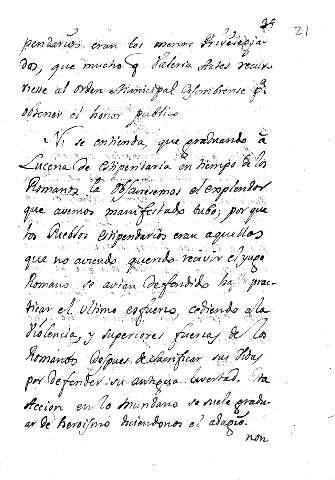 21
pendarios eran los menos Privilegia-
dos, que mucho q Valeria Actes recur-
riese al orden Municipal Cesimbrense pª
obtener el honor publico
Ni se entienda, que graduando á
Lucena de estipendiaria en tiempo de los
Romanos la obscurecemos el explendor
que avemos manifestado tubo; por que
los Pueblos estipendiarios eran aquellos
que no aviendo querido recivir el yugo
Romano se avian defendido hasta prac-
ticar el ultimo esfuerzo, cediendo á la
violencia, y superiores fuerzas de los
Romanos despues de sacrificar sus vidas
por defender su antigua livertad. Esta
Accion en lo Mundano se suele gradu-
ar de heroismo diciendonos el adagio.
non